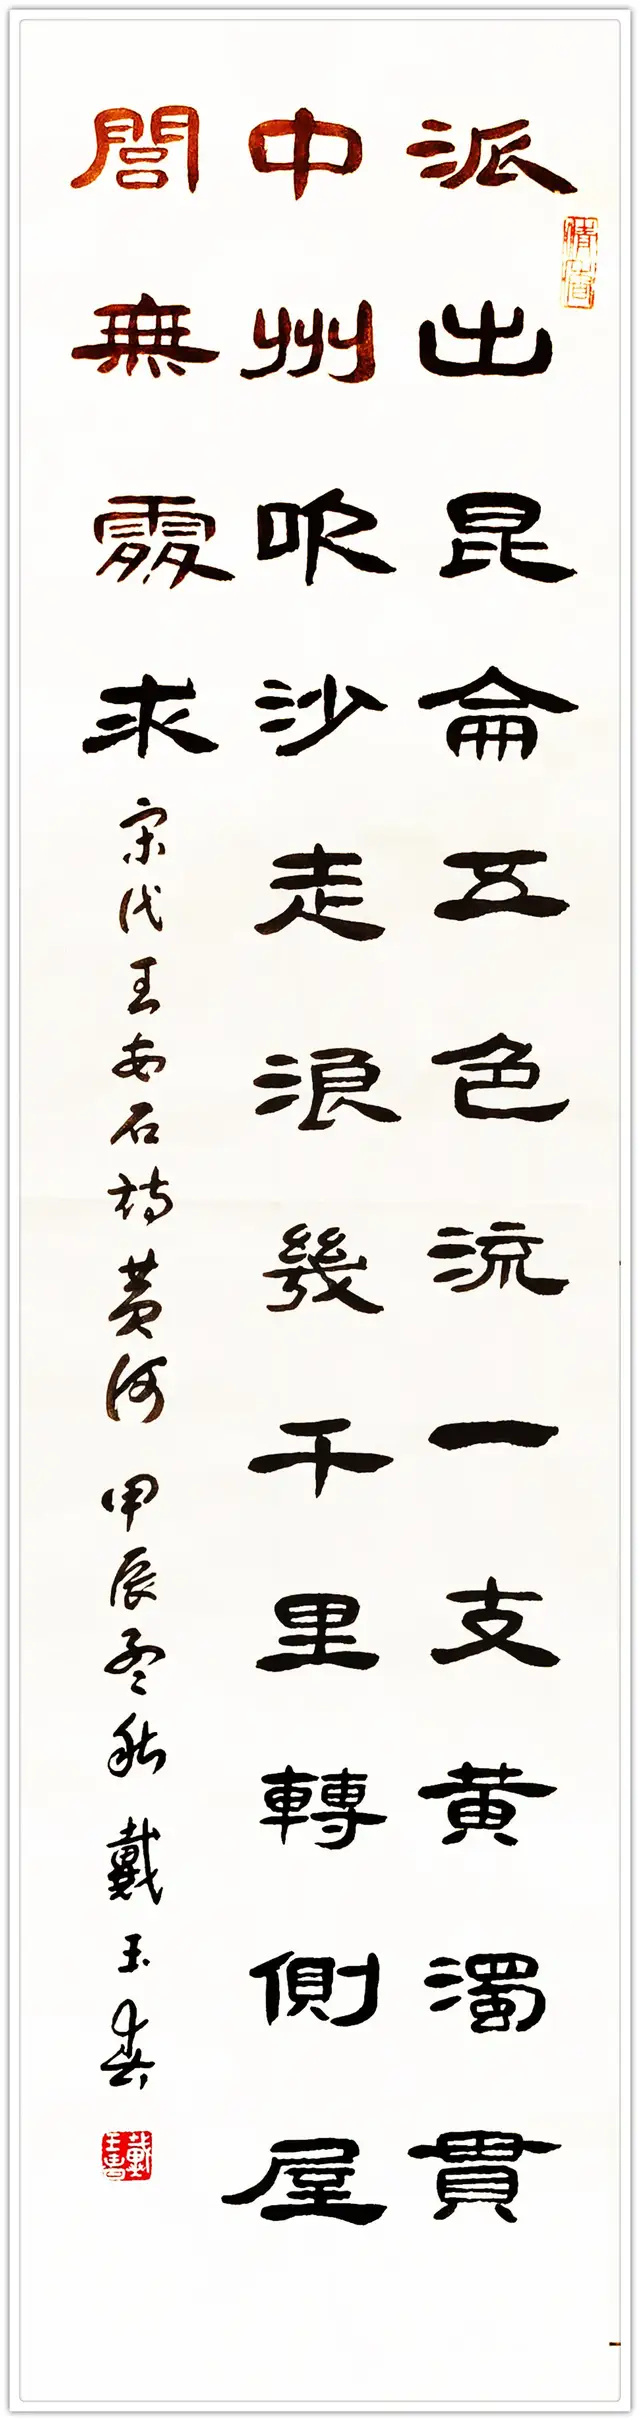 派出昆侖五色流一支黄濁貫
中州吹沙走浪幾千里轉側屋
閭無處求 宋代王安石詩黄河 甲辰孟秋 戴玉春